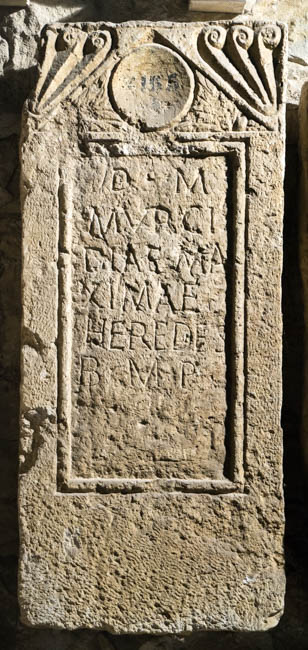 D · M
MVRCI
DIAE MA
XIMAE
HEREDES
B · M · P